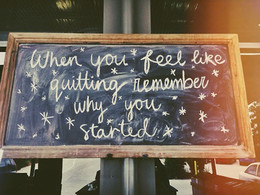 When you feel like
quitting remember
why you
started